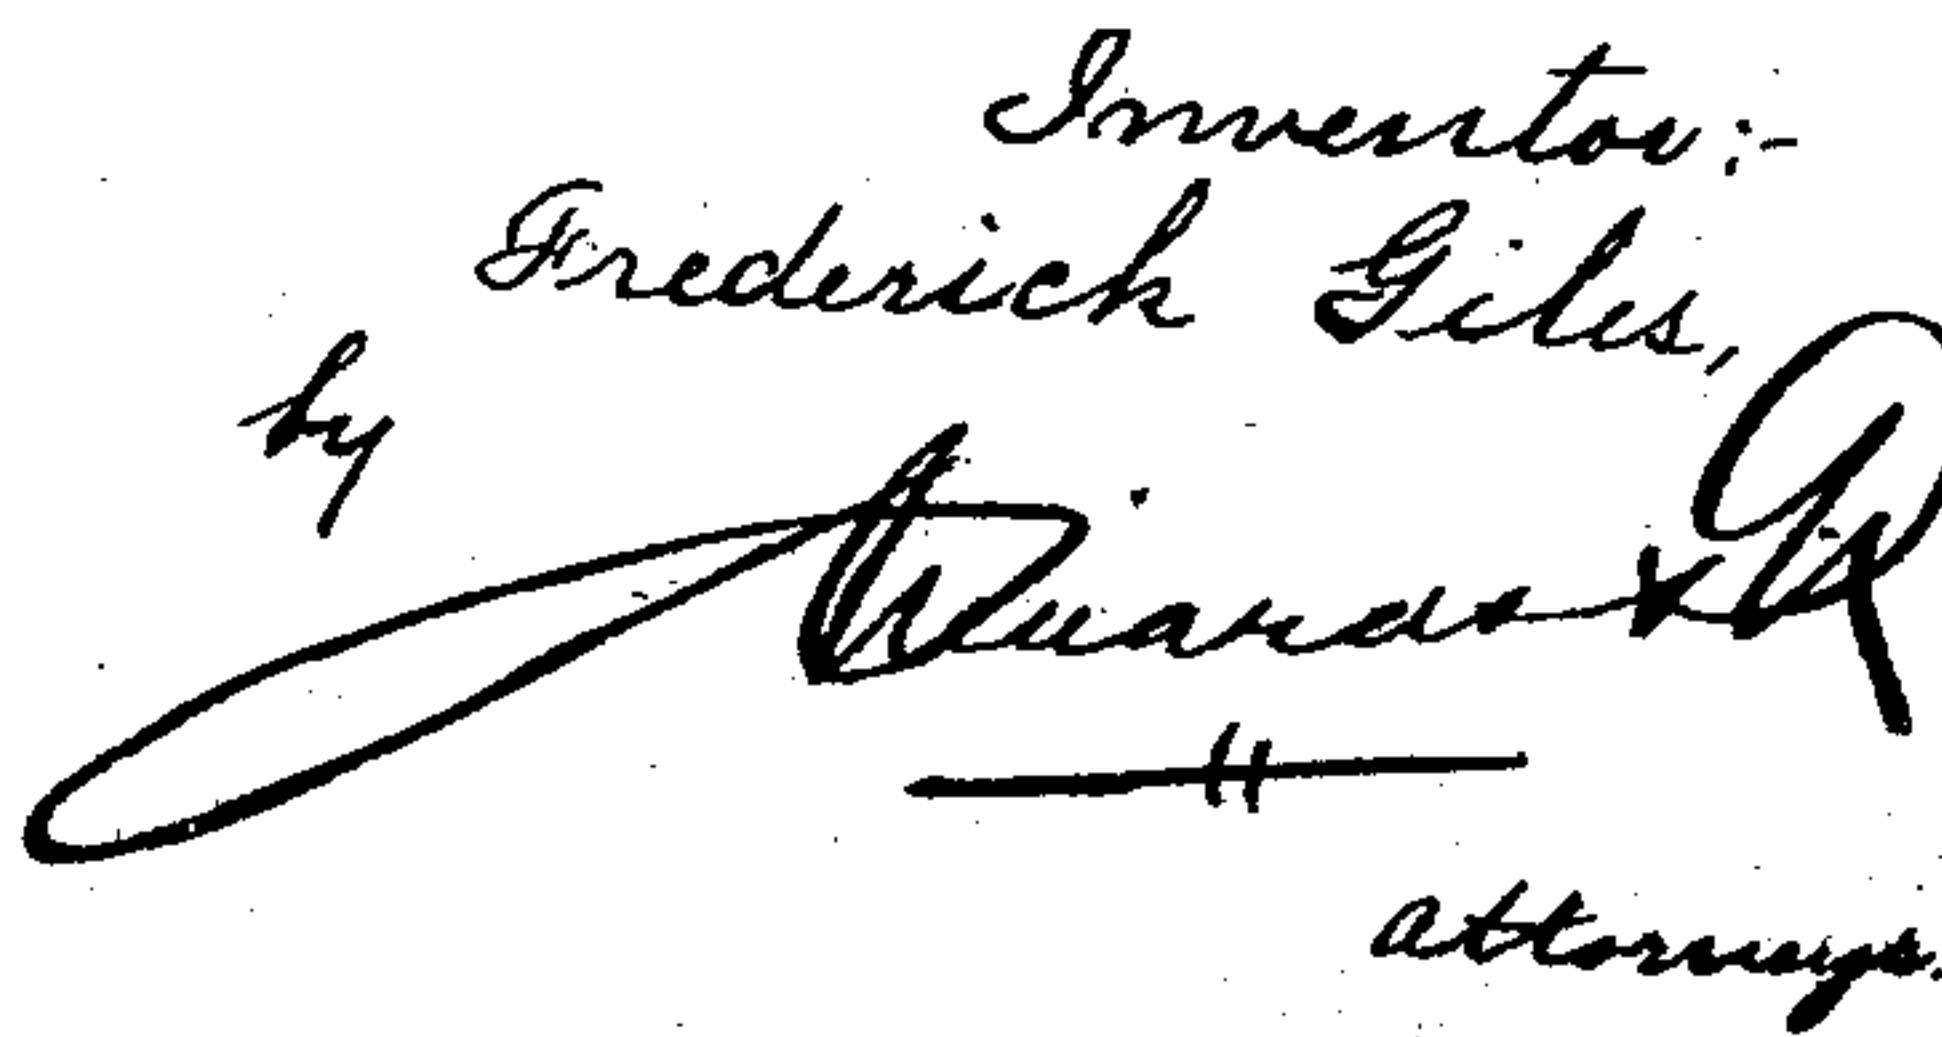 Inventor:-
Frederick Giles,
by
Attorneys.